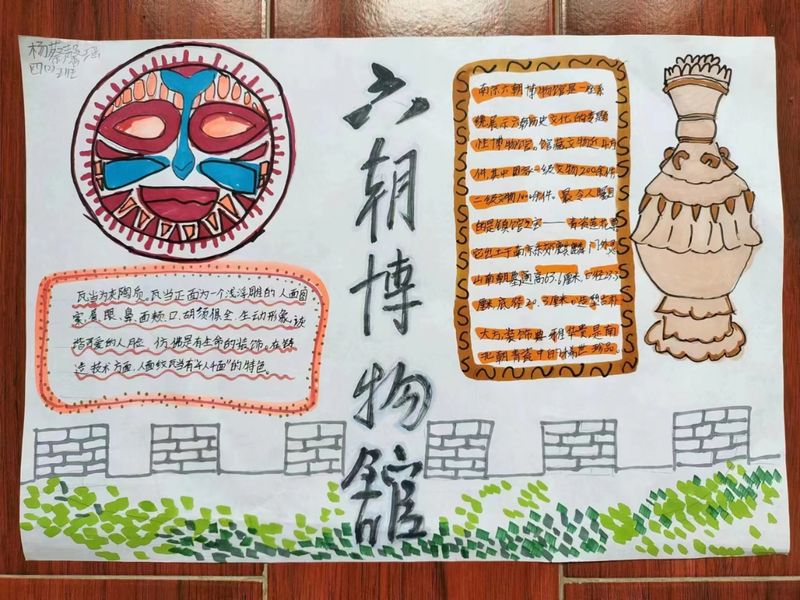 杨蔡馨瑶
四(1)班
六朝博物馆
瓦当为灰陶质,瓦当正面为一个浅浮雕的人面图
案,眉、眼、鼻、面颊、口、胡须俱全,生动形象,该
指可爱的人脸,仿佛是有生命的装饰。在铸
造技术方面,人面纹瓦当有"千人千面"的特色。
南京六朝博物馆是一座系
统展示六朝历史文化的专题
性博物馆。馆藏文物近
件其中国家一级文物200余件
二级文物100余件。最令人瞩目
的是镇馆之宝——青瓷莲花尊
它出土于南京东郊麒麟门外灵
山南朝墓通高63.6厘米,口径
厘米,底径20.3厘米,造型古朴
大方,装饰典雅华贵,是南
北朝青瓷中的精品。